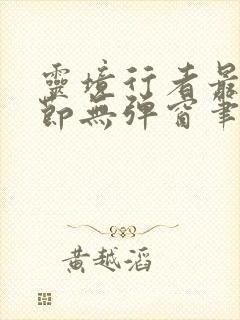 靈境行者最
節無彈窗筆
黃越滔